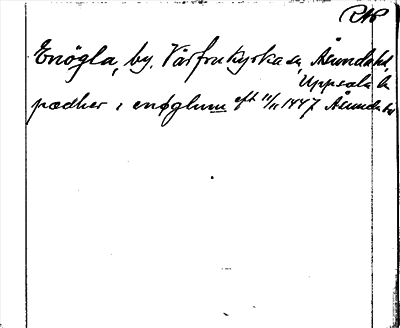 RAP
Enögla, by. Vårfrukyrka sn, Åsunda hd,
Uppsala l.
pædher i enøglum eft 11/11 1447 Åsunda hd